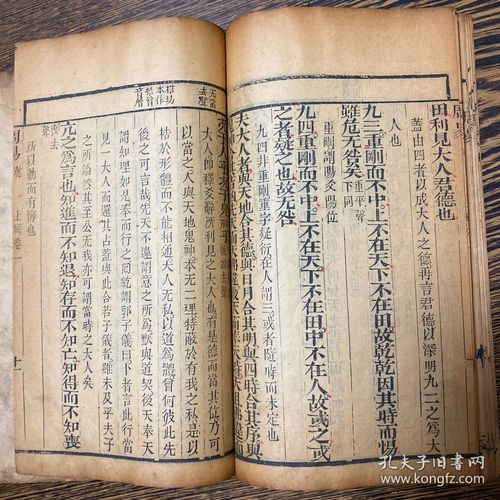 田利見大人君德也
蓋由四者以成大人之德再言君德以深明九二之爲大
人也
九三重剛而不中上不在天下不在田故乾乾因其時而惕
雖危无咎矣重平聲下同
重剛謂陽爻陽位
九四重剛而不中上不在天下不在田中不在人故或之或
之者疑之也故无咎
九四非重剛重字疑衍在人謂三或者隨時而未定也
夫大人者與天地合其德與日月合其明與四時合其序與
大人即釋爻辭所利見之大人也有是德而當其位乃可
以當之人與天地鬼神本无二理特蔽於有我之私是以
梏於形體而不能相通大人无私以道爲體曾何彼此先
後之可言哉先天不違謂意之所爲默與道契後天奉天
謂知理如是奉而行之囘紇謂郭子儀曰卜者言此行當
見一大人而還其占蓋與此合若子儀者雖未及乎夫子
之所論然其至公无我亦可謂當時之大人矣
亢之爲言也知進而不知退知存而不知亡知得而不知喪
喪去聲
所以動而有悔也
周易
上經卷一
十一
孔夫子旧书网
www.kongfz.com